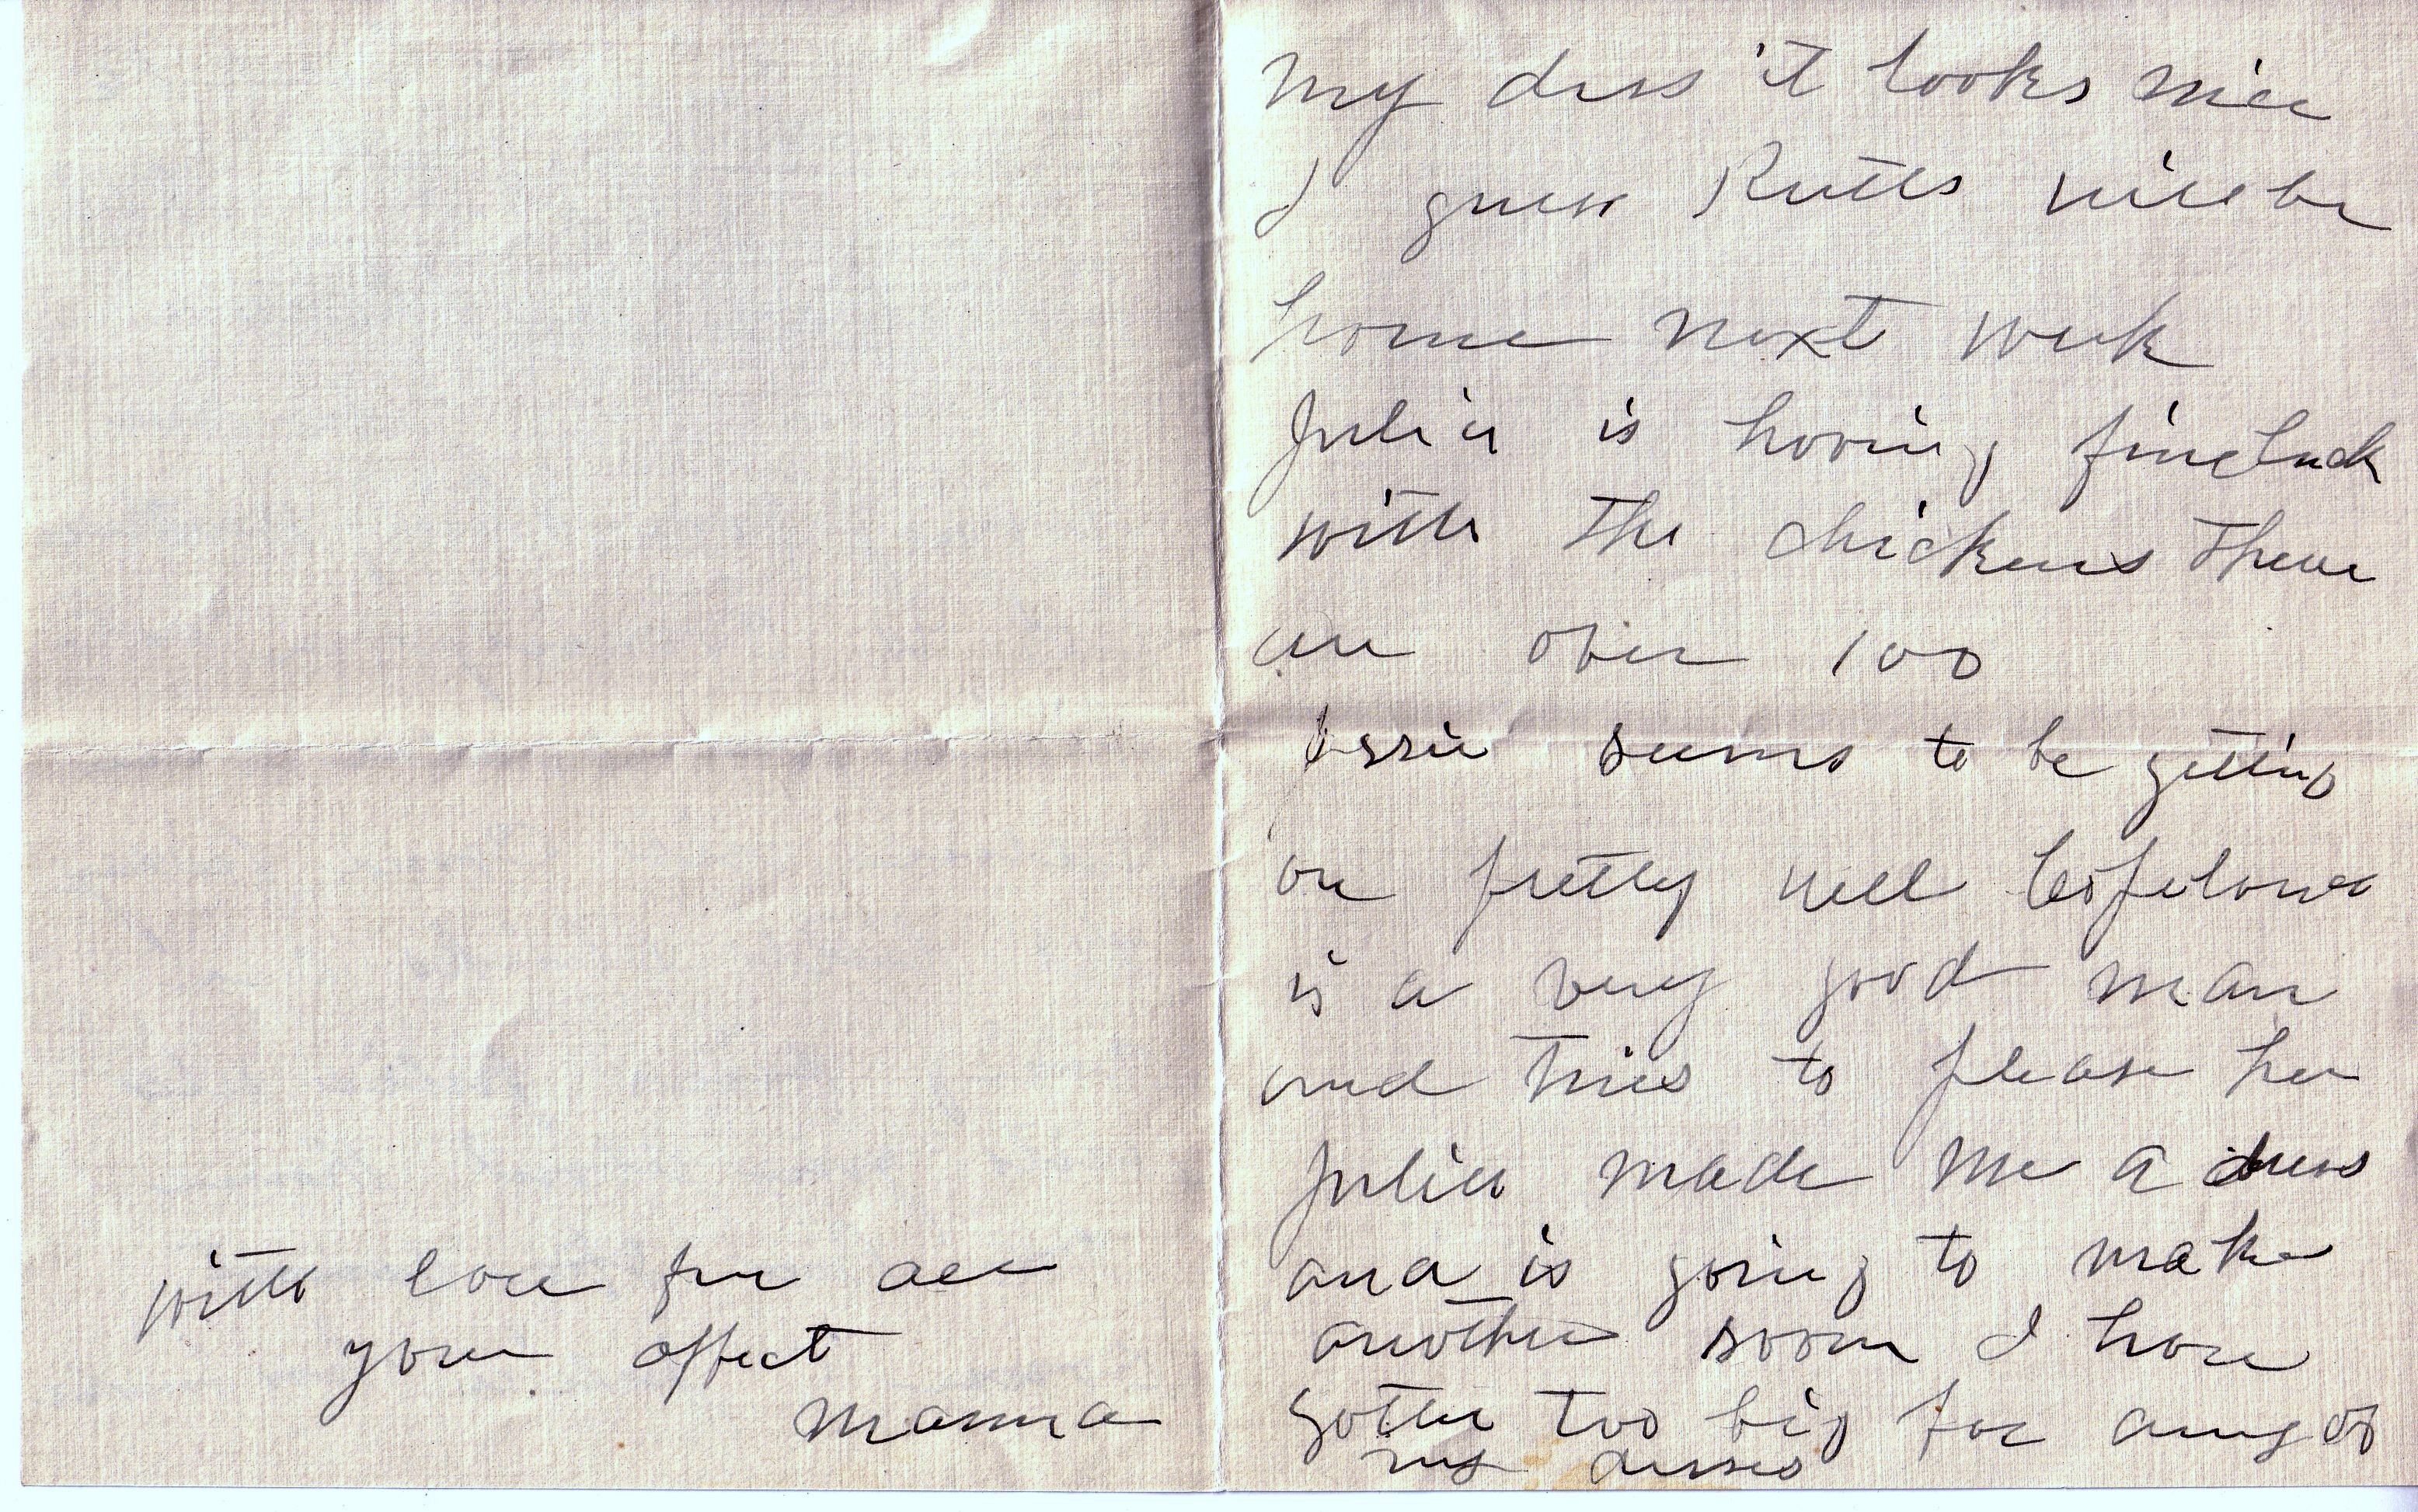 my dress it looks nice
I guess Ruth will be
home next week
Julia is having fine luck
with the chickens there
are over 100
Jessie seems to be getting
on pretty well
is a very good man
and tries to please her
Julia made me a dress
and is going to make
another soon I have
gotten too big for any of
my dresses
with love for all
your affect
mama